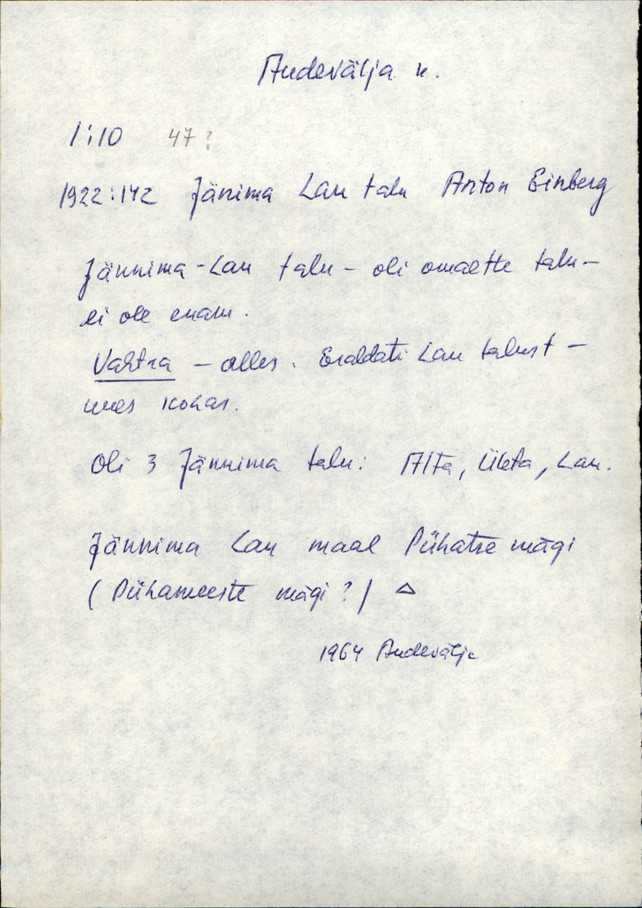 Audevälja k.
1:10 47?
1922:142 Jänima Lau talu Anton Einberg
Jännima-Lau talu – oli omaette talu –
ei ole enam.
Vahtra – alles. Eraldati Lau talust –
uues kohas.
Oli 3 Jännima talu: Alta, Ületa, Lau.
Jännima Lau maal Pühatse mägi
(Pühameeste mägi?) △
1964 Audevälja